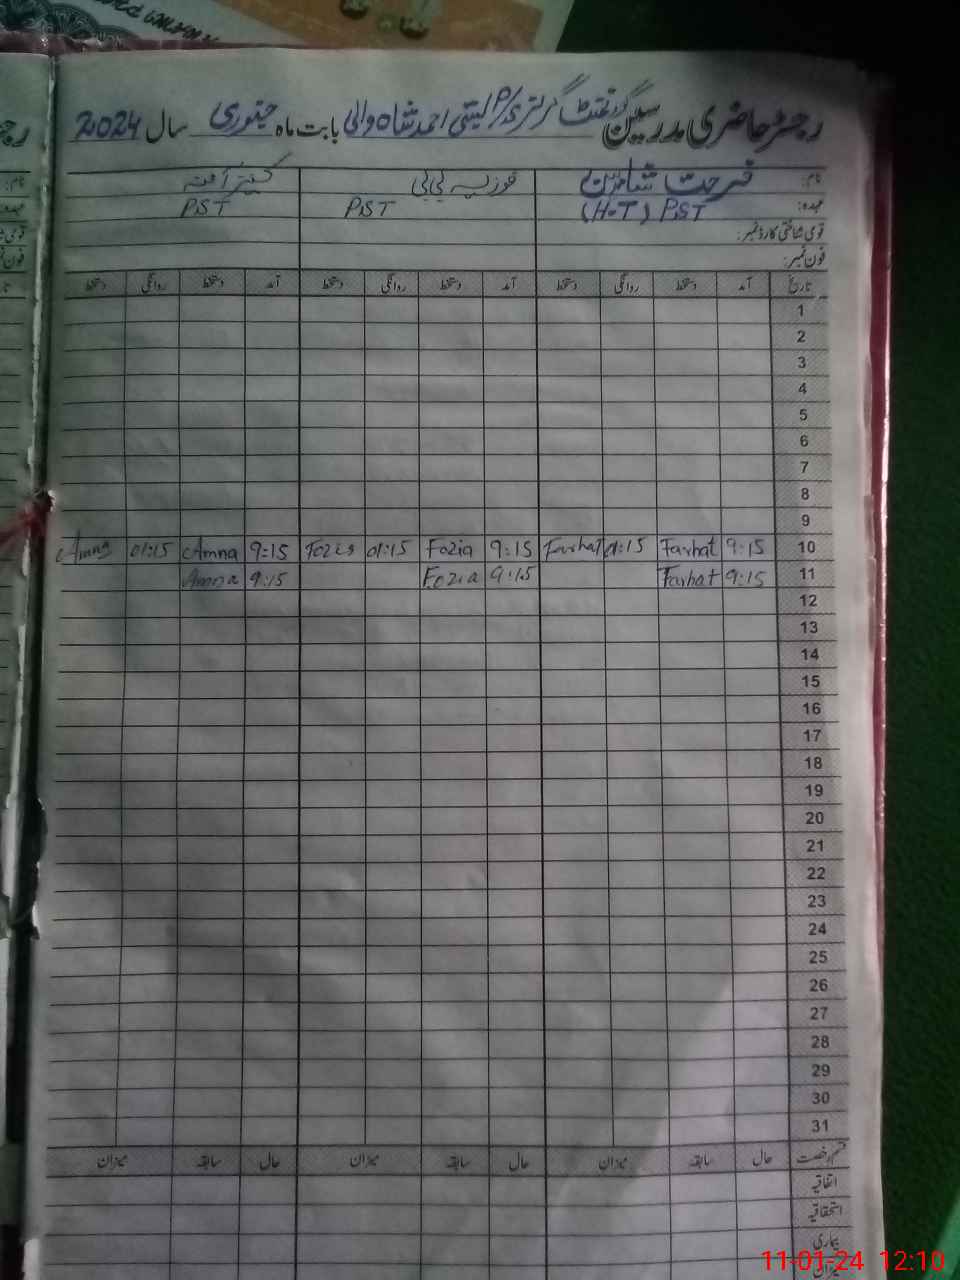 رجسٹر حاضری مدرسین گورنمنٹ گرلز پرائمری بستی احمد شاہ والی بابت ماہ جنوری سال 2024
نام: فرحت شاہین فوزیہ بی بی کنیز آمنہ
عہدہ: PST (H-T) PST PST
قومی شناختی کارڈ نمبر:
فون نمبر:
تاریخ آمد دستخط روانگی دستخط آمد دستخط روانگی دستخط آمد دستخط روانگی دستخط
1
2
3
4
5
6
7
8
9
10 9:15 Farhat 01:15 Farhat 9:15 Fozia 01:15 Fozia 9:15 Amna 01:15 Amna
11 9:15 Farhat 9:15 Fozia 9:15 Amna
12
13
14
15
16
17
18
19
20
21
22
23
24
25
26
27
28
29
30
31
قسم رخصت حال سابقہ میزان حال سابقہ میزان حال سابقہ میزان
اتفاقیہ
استحقاقیہ
بیماری
میزان
11-01-24 12:10